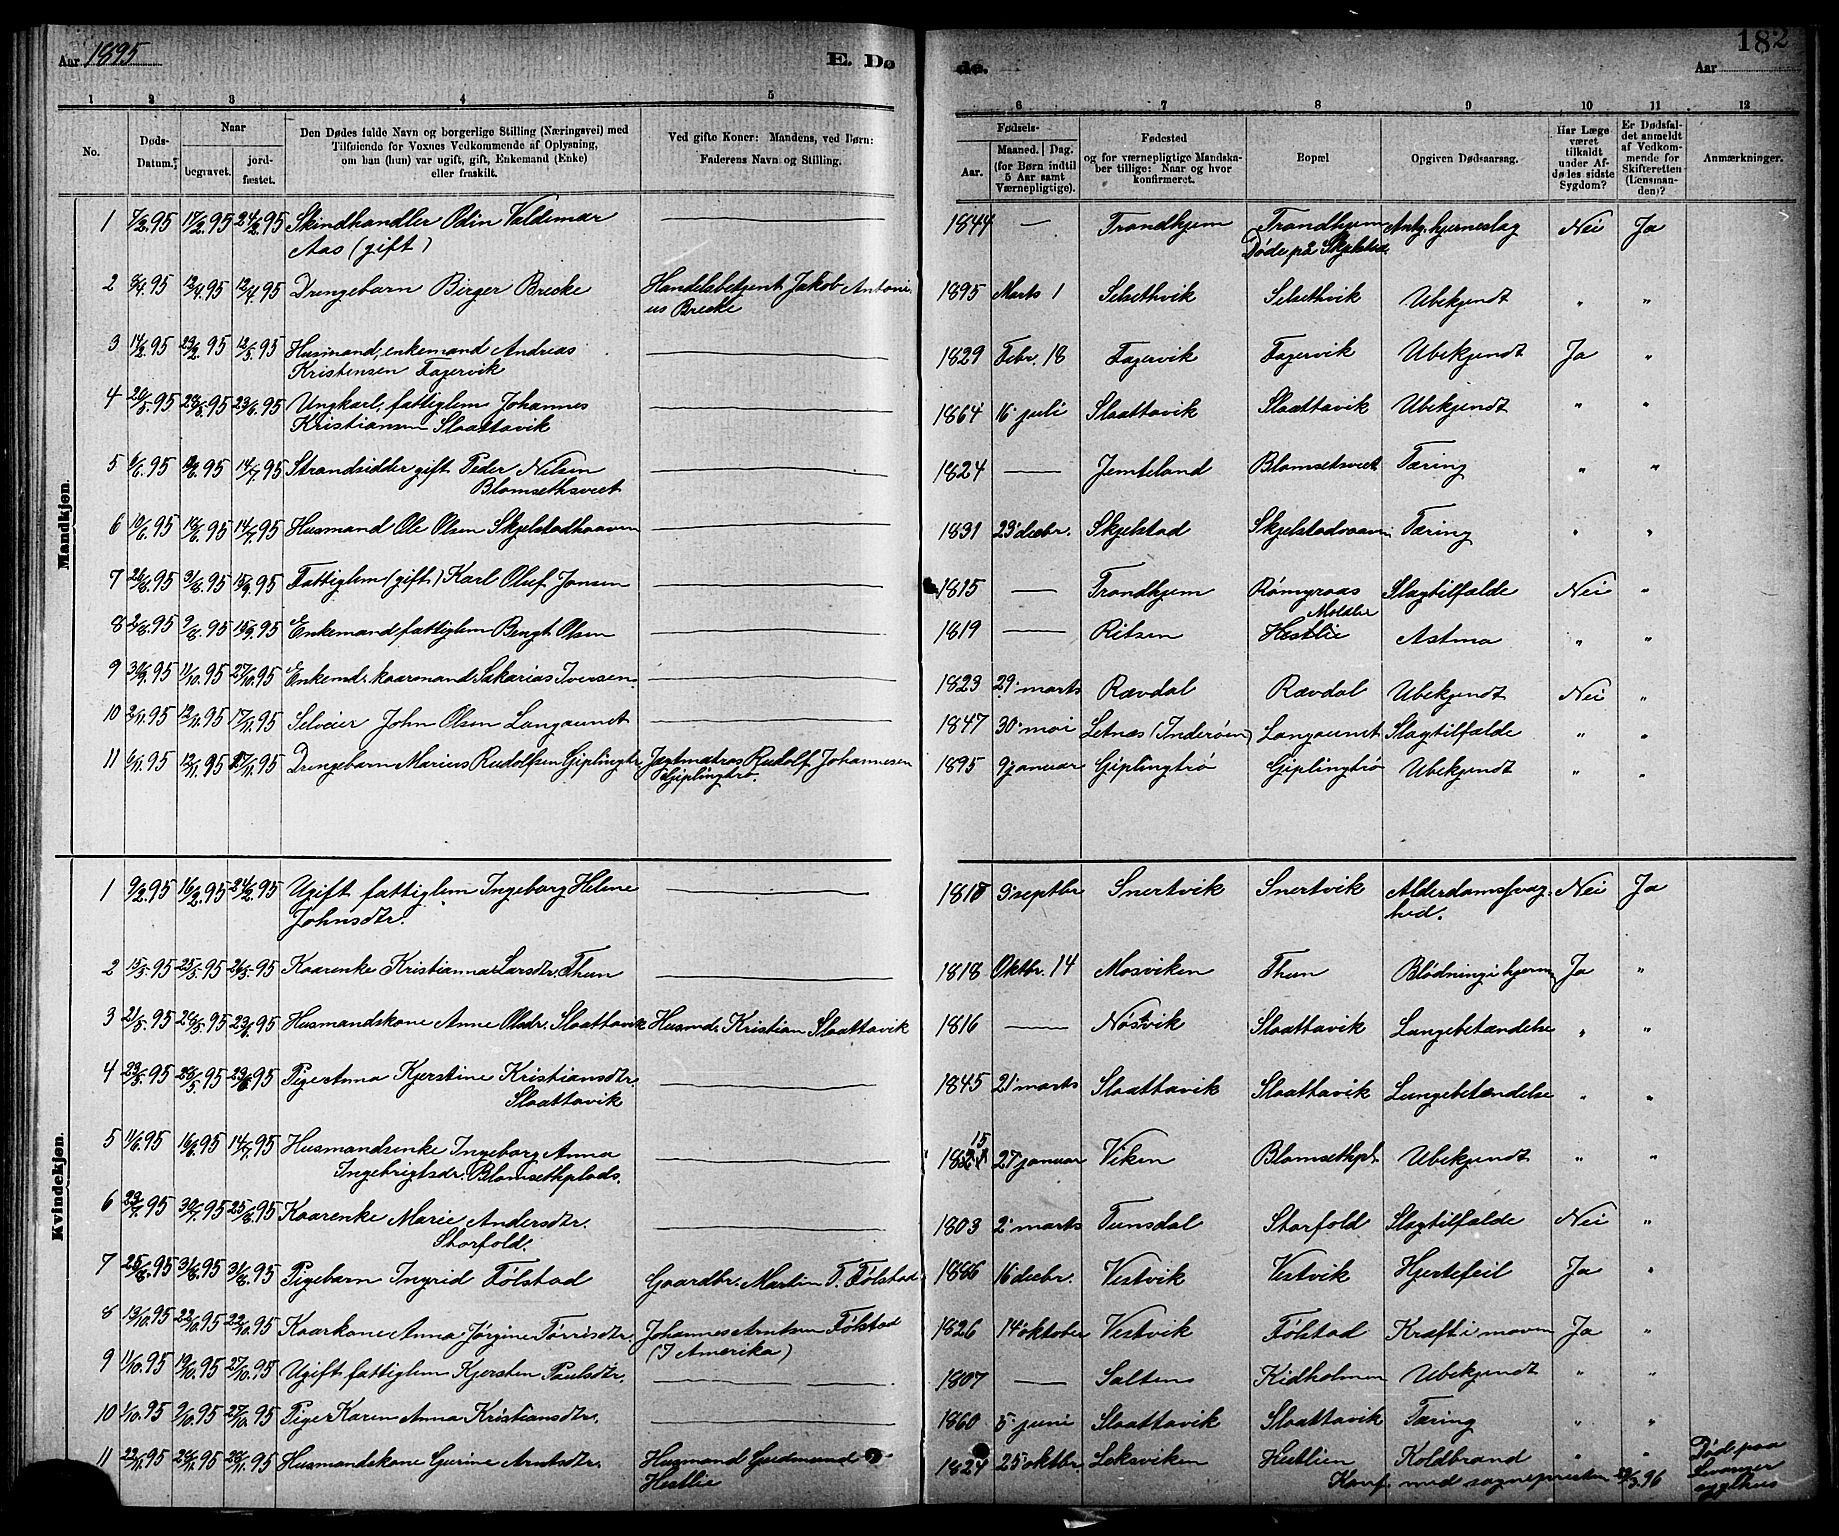 Aar 1895
E. Dø
de.
Aar
182
1 2 3 4 5 6 7 8 9 10 11 12
No.
Døds-Datum.
Naar
begravet.
jord-fæstet.
Den Dødes fulde Navn og borgerlige Stilling (Næringsvei) med
Tilføiende for Voxnes Vedkommende af Oplysning,
om han (hun) var ugift, gift, Enkemand (Enke)
eller fraskilt.
Ved gifte Koner: Mandens, ved Børn:
Faderens Navn og Stilling.
Fødsels-
Aar.
Maaned. | Dag.
(for Børn indtil
5 Aar samt
Værnepligtige).
Fødested
og for værnepligtige Mandska-
ber tillige: Naar og hvor
konfirmeret.
Bopæl
Opgiven Dødsaarsag.
Har Læge
været
tilkaldt
under Af-
dødes sidste
Sygdom?
Er Dødsfal-
det anmeldt
af Vedkom-
mende for
Skifteretten
(Lensman-
den)?
Anmærkninger.
Mandkjøn.
1 7/2.95 17/2.95 24/2.95 Skindhandler Odin Valdemar 1844 — Trondhjem Trondhjem Antg. hjerneslag Nei Ja
Aas (gift) Døde på Skjelstad
2 8/4.95 12/4.95 12/4.95 Drengebarn Birger Brecke Handelsbetjent Jakob Antoni- 1895 Marts 1 Selsethvik Selsethvik Ubekjendt " "
us Brecke
3 14/2.95 23/2.95 12/5.95 Husmand, enkemand Andreas 1829 Febr. 18 Fagervik Fagervik Ubekjendt Ja "
Kristensen Fagervik
4 20/5.95 28/5.95 23/6.95 Ungkarl, fattiglem Johannes 1864 16 juli Slaattavik Slaattavik Ubekjendt " "
Kristiansen Slaattavik
5 6/6.95 95 14/7.95 Strandsidder gift Peder Nilsen 1824 — Jemteland Blomsetsveet Tæring " "
Blomsethsveet
6 10/6.95 18/6.95 14/7.95 Husmand Ole Olsen Skjelstadhaaven 1831 23 decbr. Skjelstad Tæring " "
7 26/8.95 31/8.95 15/9.95 Fattiglem (gift) Karl Oluf Jonsen 1815 — Trondhjem Rømgraas Slagtilfælde Nei "
8 2/8.95 9/8.95 15/9.95 Enkemand fattiglem Bengt Olsen 1819 — Ritsen Hestlie Astma " "
9 95 11/10.95 27/10.95 Enkemd. kaarmand Sakarias Iversen 1823 29 marts Rævdal Rævdal Ubekjendt Nei "
10 2/11.95 12/11.95 17/11.95 Selveier John Olsen Langaunet 1847 30 mai Letnæs (Inderøen) Langaunet Slagtilfælde " "
11 6/11.95 12/11.95 17/11.95 Drengebarn Marius Rudolfsen Giplingtr. Jagtmatros Rudolf Johannesen 1895 9 januar Giplingtrø Giplingtrø Ubekjendt " "
Giplingtrø.
Kvindekjøn.
1 9/2.95 16/2.95 24/2.95 Ugift fattiglem Ingeborg Helene 9 septbr Snertvik Snertvik Alderdomssvag- Nei Ja
Johnsdtr. hed.
2 15/5.95 25/5.95 26/5.95 Kaarenke Kristianna Larsdtr. Thun 1818 Oktbr. 14 Mosviken Thun Blødning i hjernen Ja "
3 21/5.95 28/5.95 23/6.95 Husmandskone Anne Olsdr. Slaattavik Husmd. Kristian Slaattavik 1816 — Nøstvik Slaattavik Lungebetændelse " "
4 23/5.95 28/5.95 23/6.95 Pige Anna Kjerstine Kristiansdtr. 1845 21 marts Slaattavik Slaattavik Lungebetændelse " "
Slaattavik
5 11/6.95 16/6.95 14/7.95 Husmandsenke Ingeborg Anna 15 27 januar Viken Blomsethpl. Ubekjendt " "
Ingebrigtsdr. Blomsethplads.
6 23/7.95 30/7.95 25/8.95 Kaarenke Marie Andersdtr. 1803 2 marts Tunsdal Storfold Slagtilfælde Nei "
Storfold.
7 25/8.95 31/8.95 31/8.95 Pigebarn Ingrid Følstad Gaardbr. Martin T. Følstad 1886 16 decbr. Vestvik Vestvik Hjertefeil Ja "
8 13/10.95 22/10.95 22/10.95 Kaarkone Anna Jørgine Tørrisdtr. Johannes Arntsen Følstad 1826 14 oktober Vestvik Følstad Kræft i maven Ja "
(I Amerika)
9 11/10.95 19/10.95 27/10.95 Ugift fattiglem Kjersten Paulsdtr. 1807 — Salten Kidholmen Ubekjendt " "
10 1/10.95 9/10.95 27/10.95 Pige Karen Anna Kristiansdtr. 1860 5 juni Slaattavik Slaattavik Tæring " "
11 22/11.95 28/11.95 28/11.95 Husmandskone Gurine Arntsdtr. Husmand Gudmund 1824 25 oktbr. Leksviken Hestlien Koldbrand " " Død paa
Hestlie Konf. med sognepresten 29/3.96 Levanger
sygehus